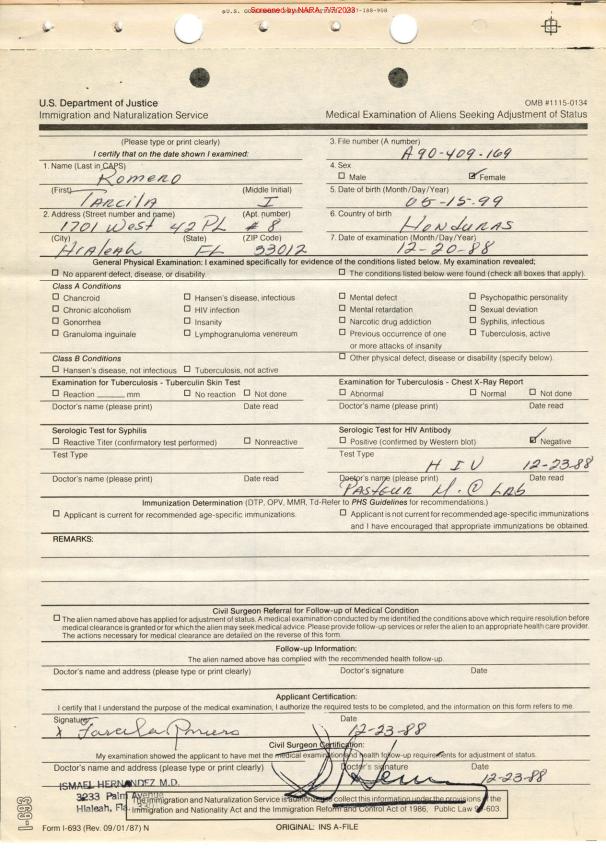 Screened by NARA, 7/7/2023
U.S. Department of Justice
Immigration and Naturalization Service
OMB #1115-0134
Medical Examination of Aliens Seeking Adjustment of Status
(Please type or print clearly)
I certify that on the date shown I examined:
3. File number (A number)
A90-409-169
1. Name (Last in CAPS)
Romero
4. Sex
Male Female
(First) (Middle Initial)
Tarcila I
5. Date of birth (Month/Day/Year)
05-15-99
2. Address (Street number and name) (Apt. number)
1701 West 42 PL # 8
6. Country of birth
Honduras
(City) (State) (ZIP Code)
Hialeah FL 33012
7. Date of examination (Month/Day/Year)
12-20-88
General Physical Examination: I examined specifically for evidence of the conditions listed below. My examination revealed;
No apparent defect, disease, or disability. The conditions listed below were found (check all boxes that apply).
Class A Conditions
Chancroid Hansen's disease, infectious Mental defect Psychopathic personality
Chronic alcoholism HIV infection Mental retardation Sexual deviation
Gonorrhea Insanity Narcotic drug addiction Syphilis, infectious
Granuloma inguinale Lymphogranuloma venereum Previous occurrence of one Tuberculosis, active
or more attacks of insanity
Class B Conditions
Other physical defect, disease or disability (specify below).
Hansen's disease, not infectious Tuberculosis, not active
Examination for Tuberculosis - Tuberculin Skin Test
Reaction ______ mm No reaction Not done
Doctor's name (please print) Date read
Examination for Tuberculosis - Chest X-Ray Report
Abnormal Normal Not done
Doctor's name (please print) Date read
Serologic Test for Syphilis
Reactive Titer (confirmatory test performed) Nonreactive
Test Type
Doctor's name (please print) Date read
Serologic Test for HIV Antibody
Positive (confirmed by Western blot) Negative
Test Type
HIV 12-23-88
Doctor's name (please print) Date read
Pasteur M. @ Lab
Immunization Determination (DTP, OPV, MMR, Td-Refer to PHS Guidelines for recommendations.)
Applicant is current for recommended age-specific immunizations. Applicant is not current for recommended age-specific immunizations
and I have encouraged that appropriate immunizations be obtained.
REMARKS:
Civil Surgeon Referral for Follow-up of Medical Condition
The alien named above has applied for adjustment of status. A medical examination conducted by me identified the conditions above which require resolution before
medical clearance is granted or for which the alien may seek medical advice. Please provide follow-up services or refer the alien to an appropriate health care provider.
The actions necessary for medical clearance are detailed on the reverse of this form.
Follow-up Information:
The alien named above has complied with the recommended health follow-up.
Doctor's name and address (please type or print clearly) Doctor's signature Date
Applicant Certification:
I certify that I understand the purpose of the medical examination, I authorize the required tests to be completed, and the information on this form refers to me.
Signature Date
x Tarcila Romero 12-23-88
Civil Surgeon Certification:
My examination showed the applicant to have met the medical examination and health follow-up requirements for adjustment of status.
Doctor's name and address (please type or print clearly) Doctor's signature Date
12-23-88
ISMAEL HERNANDEZ M.D.
3233 Palm Avenue
Hialeah, Fla.
The Immigration and Naturalization Service is authorized to collect this information under the provisions of the
Immigration and Nationality Act and the Immigration Reform and Control Act of 1986, Public Law 99-603.
I-693
Form I-693 (Rev. 09/01/87) N
ORIGINAL: INS A-FILE